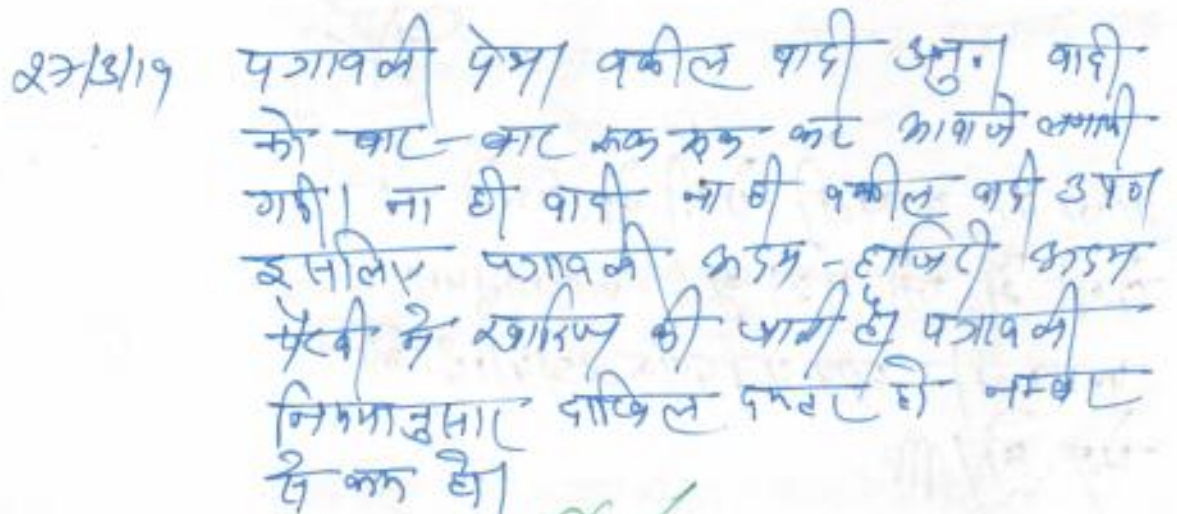 27/3/19 पत्रावली पेश। वकील वादी अनु.। वादी
को बार-बार रूक रूक कर आवाजे लगायी
गयी। ना ही वादी ना ही वकील वादी उप०।
इसलिए पत्रावली अदम-हाजिरी अदम
पैरवी मे खारिज की जाती है। पत्रावली
नियमानुसार दाखिल दफ्तर हो नम्बर
से कम हो।